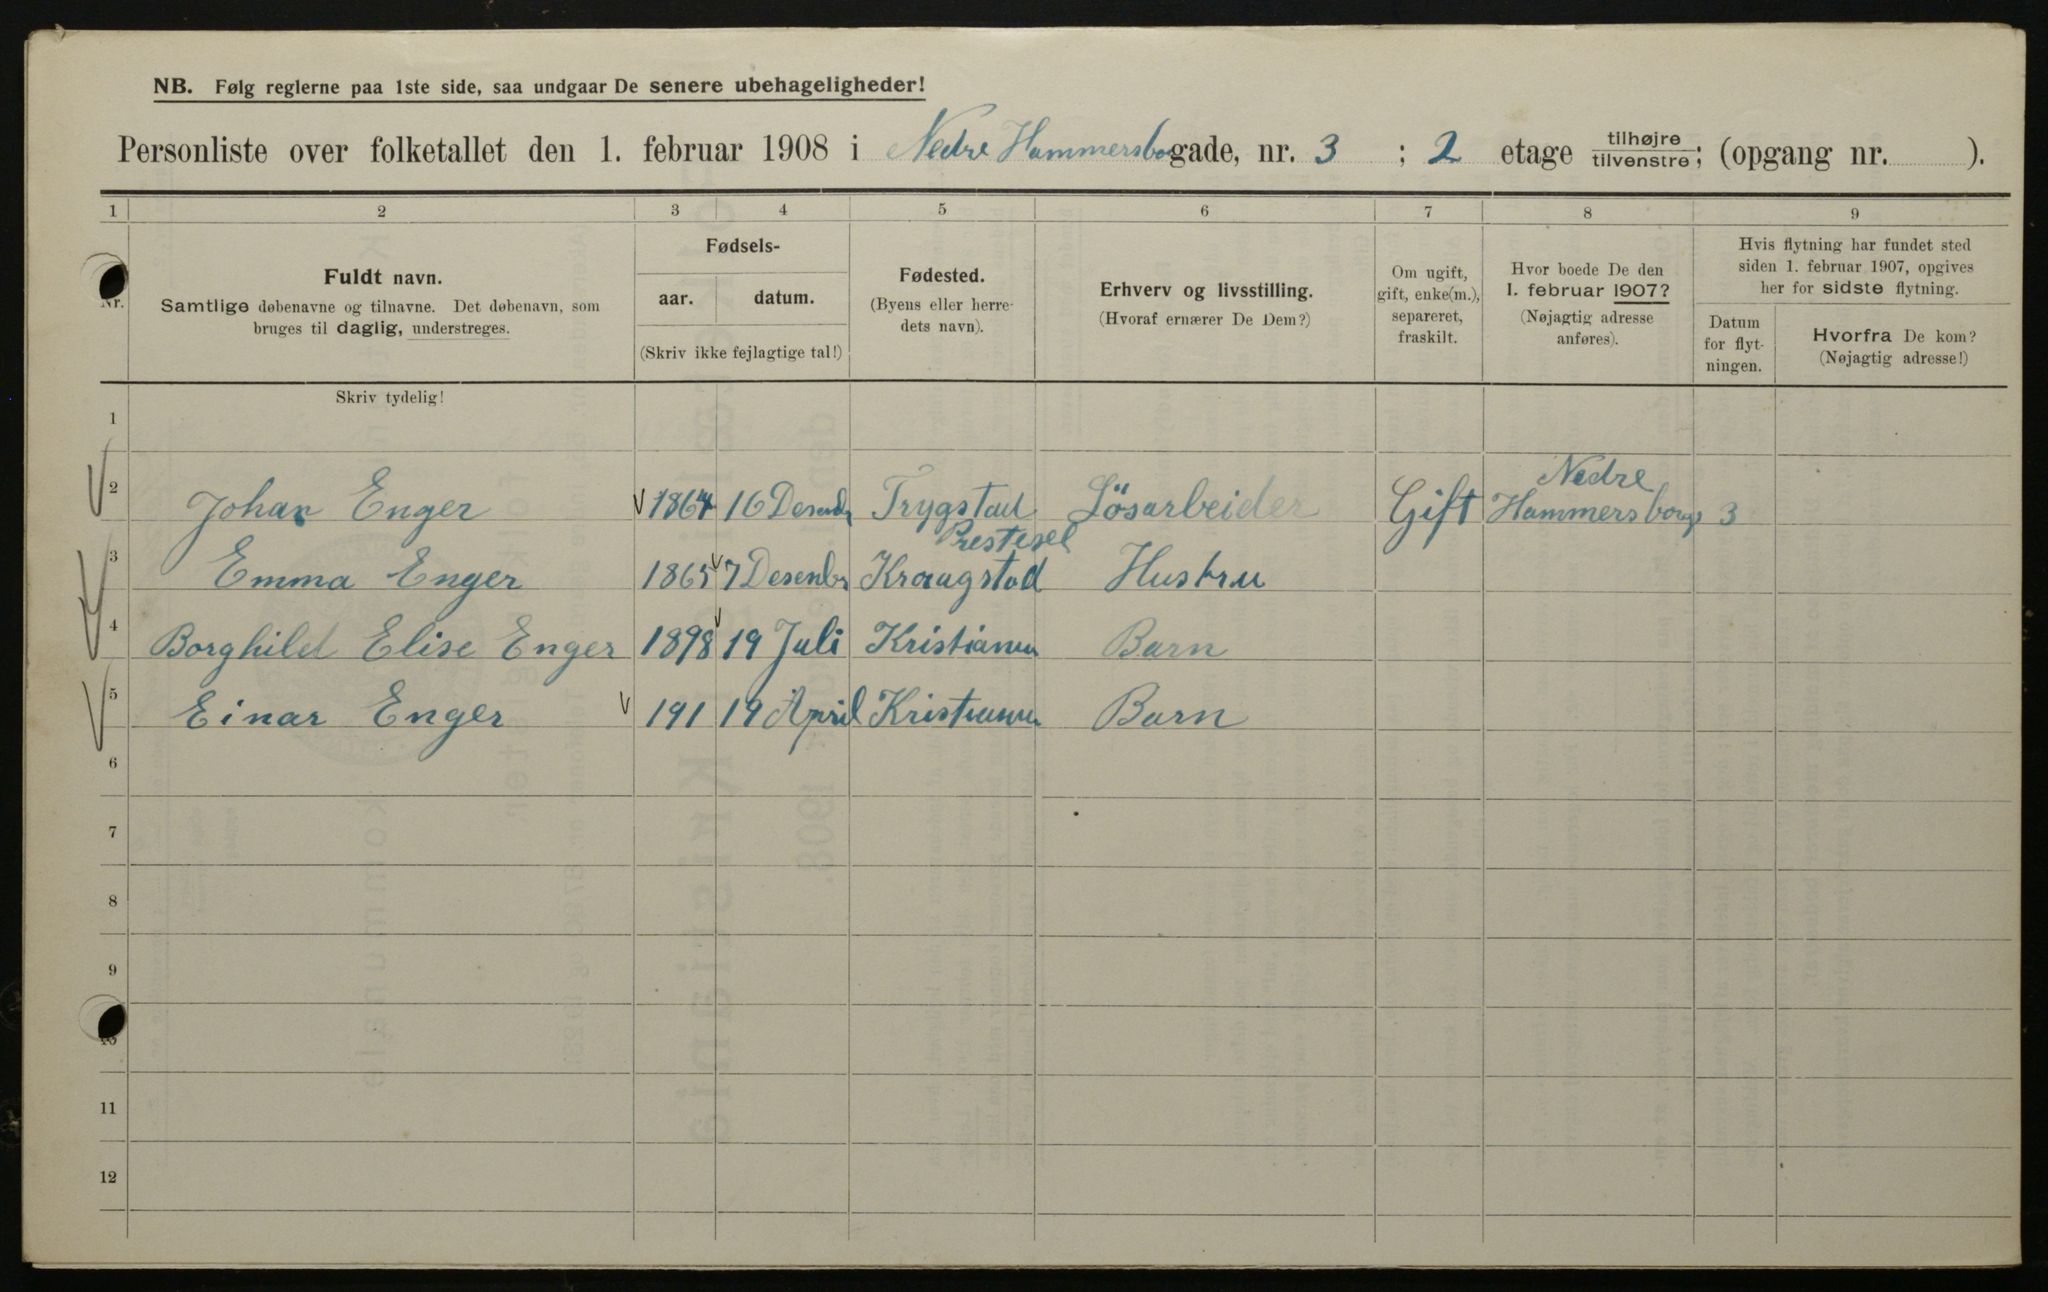 NB. Følg reglerne paa 1ste side, saa undgaar De senere ubehageligheder!
Personliste over folketallet den 1. februar 1908 i Nedre Hammersborgade, nr. 3 ; 2 etage tilhøjre/tilvenstre; (opgang nr. ).
1 2 3 4 5 6 7 8 9
Nr.
Fuldt navn.
Samtlige døbenavne og tilnavne. Det døbenavn, som
bruges til daglig, understreges.
Fødsels-
aar. datum.
(Skriv ikke fejlagtige tal!)
Fødested.
(Byens eller herre-
dets navn).
Erhverv og livsstilling.
(Hvoraf ernærer De Dem?)
Om ugift,
gift, enke(m.),
separeret,
fraskilt.
Hvor boede De den
1. februar 1907?
(Nøjagtig adresse
anføres).
Hvis flytning har fundet sted
siden 1. februar 1907, opgives
her for sidste flytning.
Datum
for flyt-
ningen.
Hvorfra De kom?
(Nøjagtig adresse!)
Skriv tydelig!
1
Nedre
2 Johan Enger 1864 16 Desenbr Trygstad Lösarbeider Gift Hammersborg 3
Prestesel
3 Emma Enger 1865 7 Desenbr Kraagstad Hustru
4 Borghild Elise Enger 1898 19 Juli Kristiania Barn
5 Einar Enger 191 19 April Kristiania Barn
6
7
8
9
10
11
12